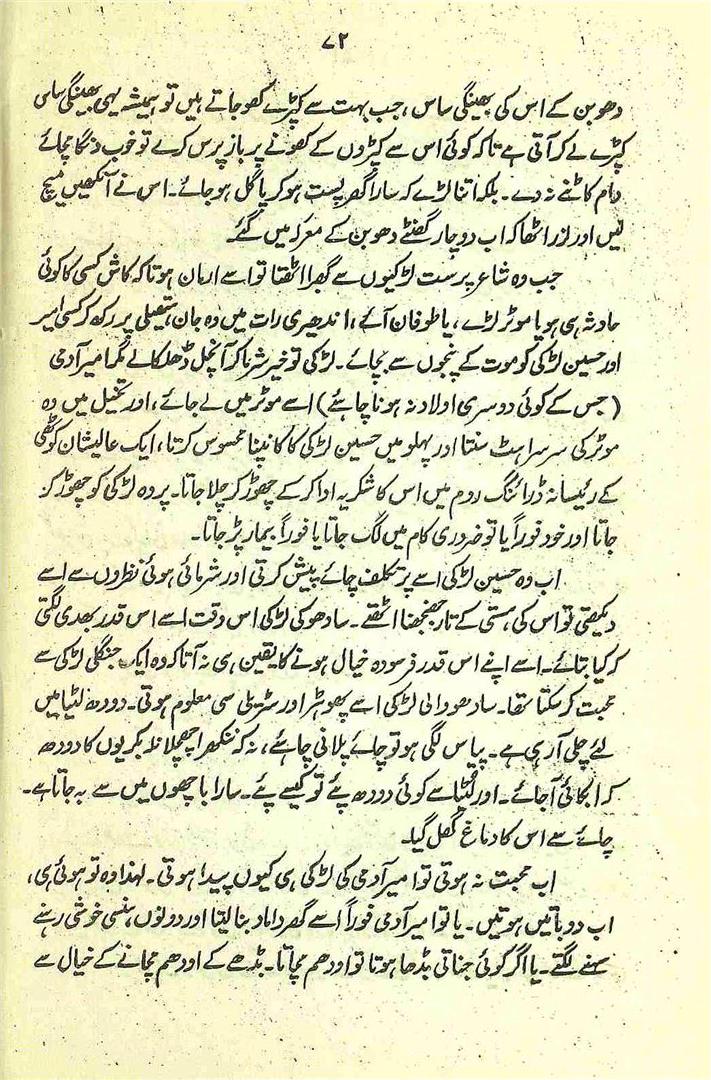 ۷۲
دھوبن کے اس کی بھینگی ساس، جب بہت سے کپڑے کھو جاتے ہیں تو ہمیشہ یہی بھینگی ساس
کپڑے لے کر آتی ہے تاکہ کوئی اس سے کپڑوں کے کھونے پر باز پرس کرے تو خوب دنگا مچائے
دام کاٹنے نہ دے۔ بلکہ اتنا لڑے کہ سارا گھر پست ہو کر پاگل ہو جائے۔ اس نے آنکھیں میچ
لیں اور لرز اٹھا کہ اب دو چار گھنٹے دھوبن کے معرکہ میں گئے۔
جب وہ شاعر پرست لڑکیوں سے گھبرا اٹھتا تو اسے ارمان ہوتا کہ کاش کسی کا کوئی
حادثہ ہی ہو یا موٹر لڑے، یا طوفان آئے، اندھیری رات میں وہ جان ہتھیلی پر رکھ کر کسی امیر
اور حسین لڑکی کو موت کے پنجوں سے بچائے۔ لڑکی تو خیر شرما کر آنچل ڈھلکالے مگر امیر آدمی
(جس کے کوئی دوسری اولاد نہ ہونا چاہئے) اسے موٹر میں لے جائے، اور تخیل میں وہ
موٹر کی سرسراہٹ سنتا اور پہلو میں حسین لڑکی کا کانپنا محسوس کرتا، ایک عالیشان کوٹھی
کے رئیسانہ ڈرائنگ روم میں اس کا شکریہ ادا کر کے چھوڑ کر چلا جاتا۔ پر وہ لڑکی کو چھوڑ کر
جاتا اور خود فوراً یا تو ضروری کام میں لگ جاتا یا فوراً بیمار پڑ جاتا۔
اب وہ حسین لڑکی اسے پر تکلف چائے پیش کرتی اور شرمائی ہوئی نظروں سے اسے
دیکھتی تو اس کی ہستی کے تار جھنجھنا اٹھتے۔ سادھو کی لڑکی اس وقت اسے اس قدر بھدی لگتی
کہ کیا بتائے۔ اسے اپنے اس قدر فرسودہ خیال ہونے کا یقین ہی نہ آتا کہ وہ ایک جنگلی لڑکی سے
محبت کر سکتا تھا۔ سادھو والی لڑکی اسے پھوہڑ اور سڑیلی سی معلوم ہوتی۔ دودھ لٹیا میں
لئے چلی آ رہی ہے۔ پیاس لگی ہو تو چائے پلانی چاہئے، نہ کہ بکریوں کا دودھ
کہ ابکائی آ جائے۔ اور لٹیا سے کوئی دودھ پئے تو کیسے پئے۔ سارا باچھوں میں سے بہ جاتا ہے۔
چائے سے اس کا دماغ کھل گیا۔
اب محبت نہ ہوتی تو امیر آدمی کی لڑکی ہی کیوں پیدا ہوتی۔ لہذا وہ تو ہوئی ہی،
اب دو باتیں ہوتیں۔ یا تو امیر آدمی فوراً اسے گھر داماد بنا لیتا اور دونوں ہنسی خوشی رہنے
سہنے لگتے۔ یا اگر کوئی جناتی بڈھا ہوتا تو اودھم مچاتا۔ بڈھے کے اودھم مچانے کے خیال سے